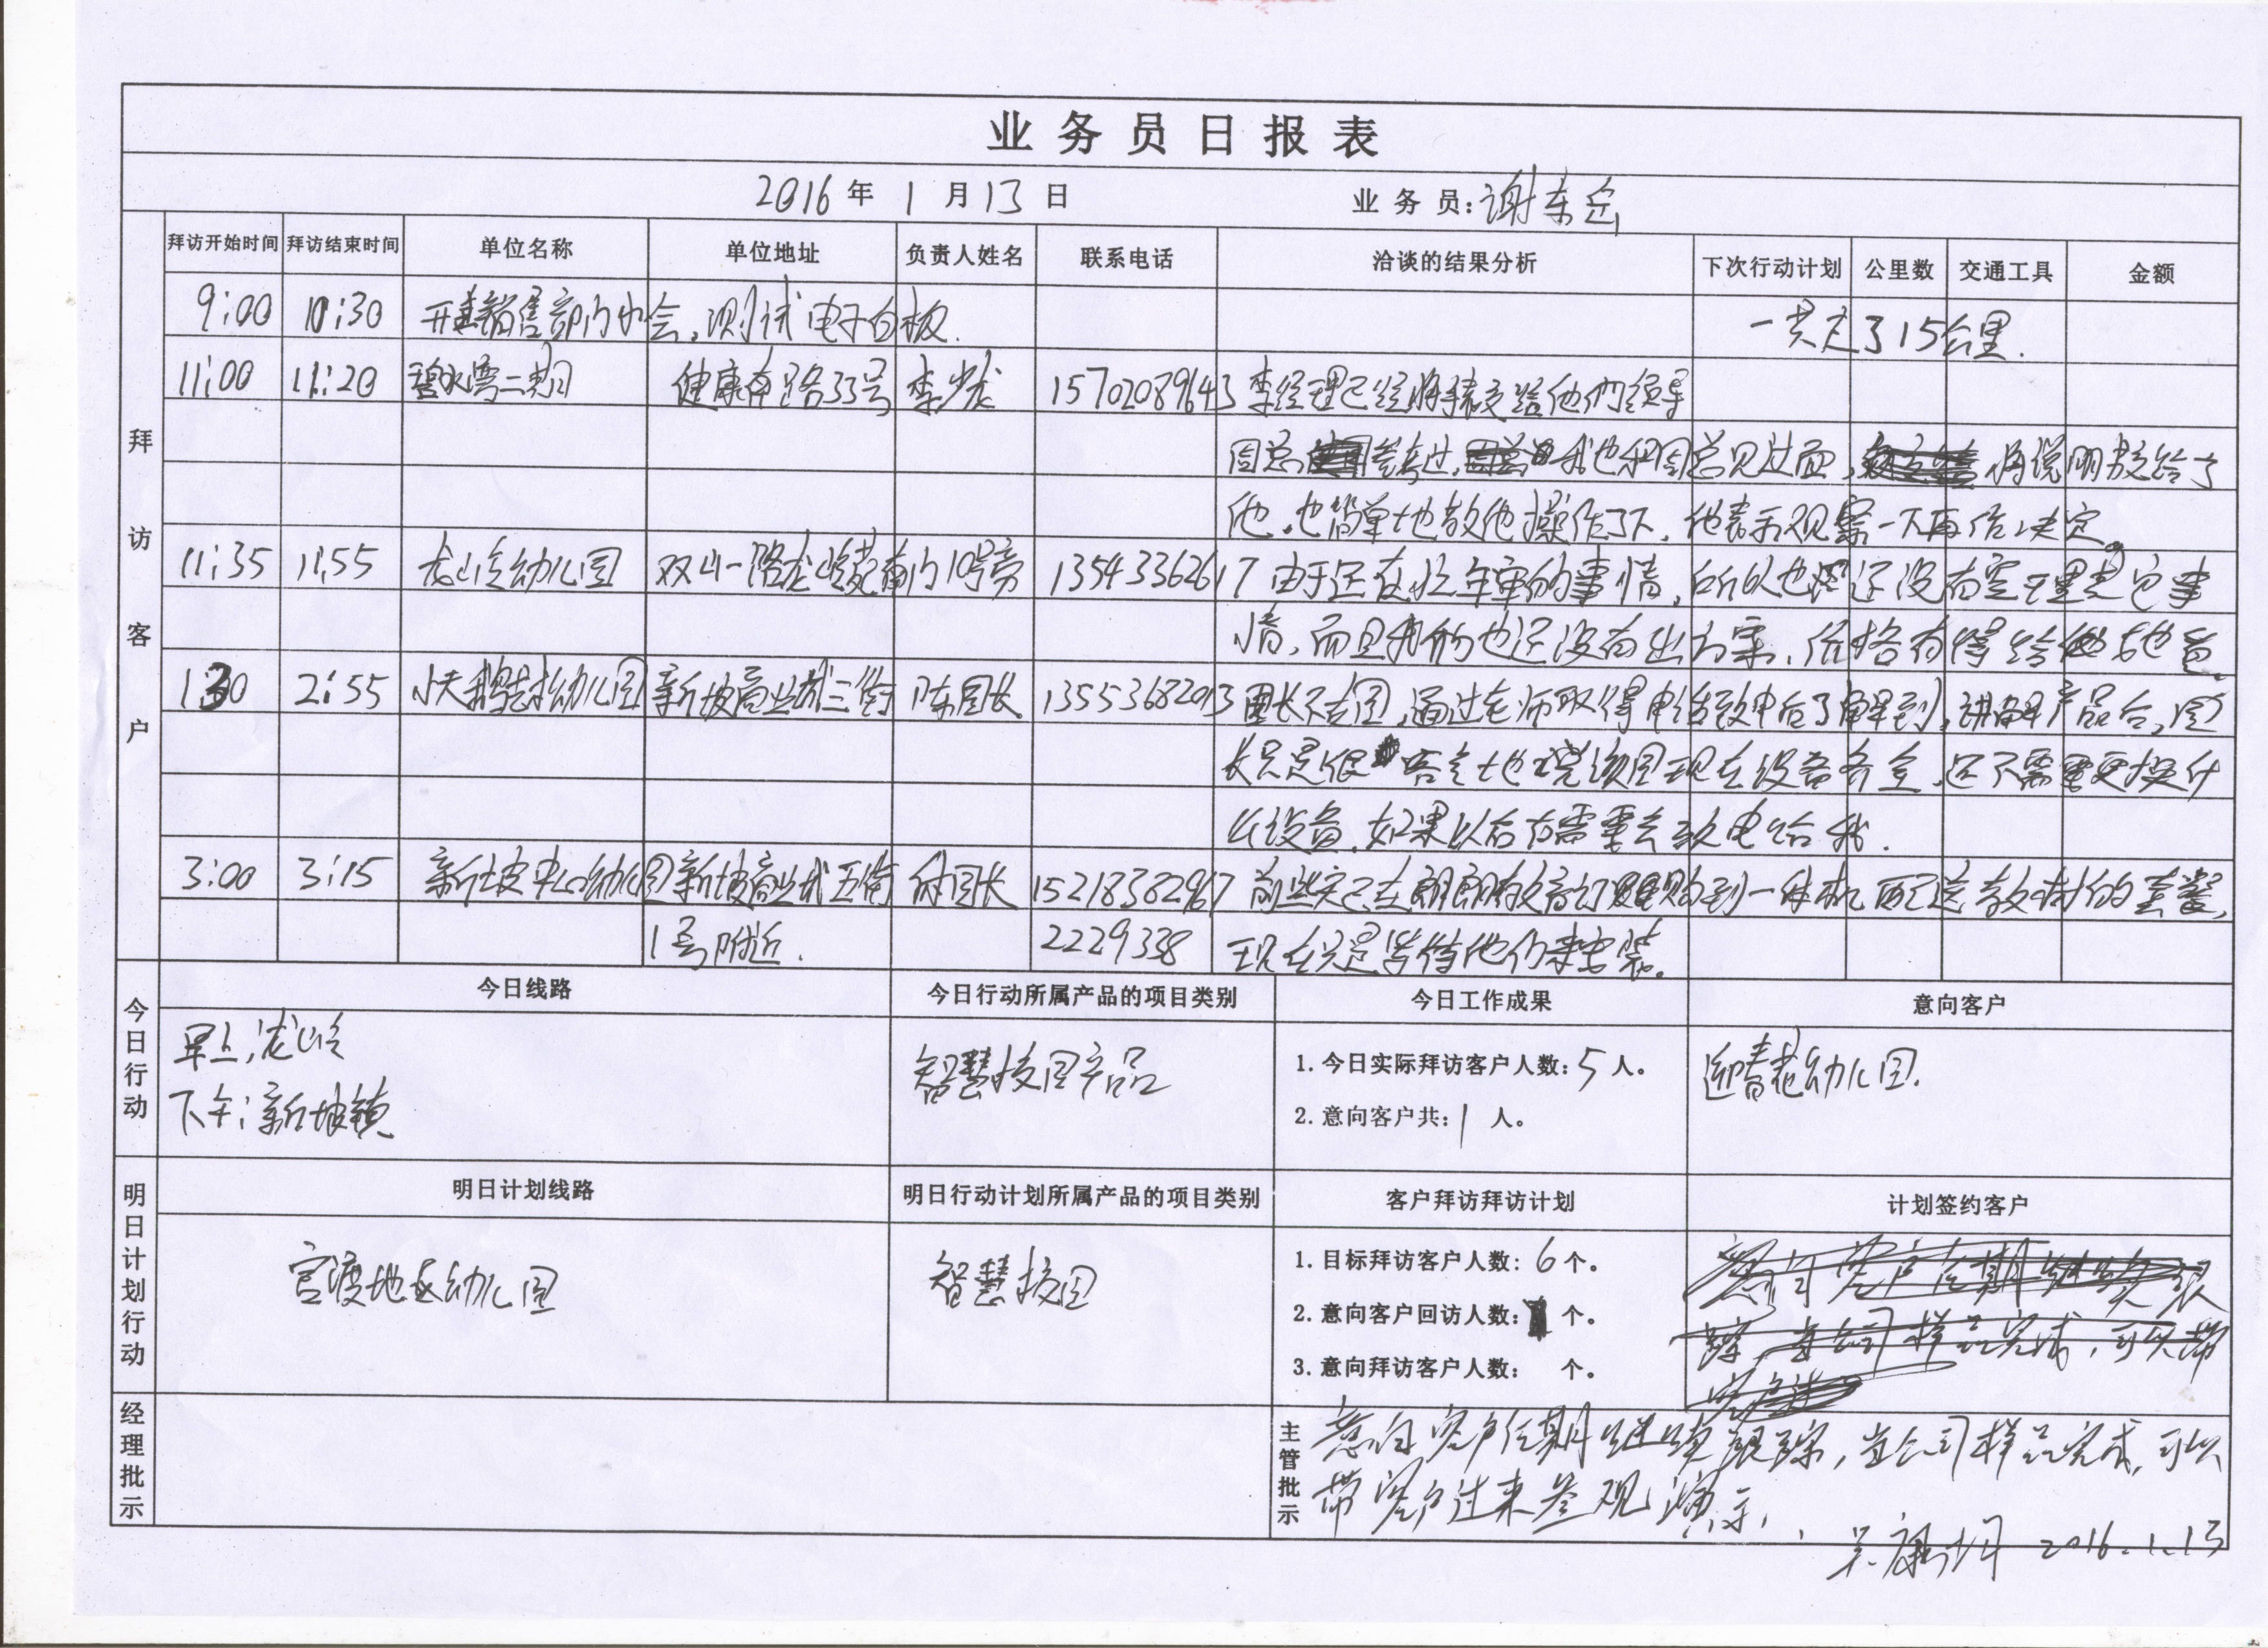 业务员日报表
2016年1月13日 业务员:谢东
拜访客户
拜访开始时间 拜访结束时间 单位名称 单位地址 负责人姓名 联系电话 洽谈的结果分析 下次行动计划 公里数 交通工具 金额
9:00 10:30 开销售部内小会,测试电子白板. 一共走了15公里.
11:00 11:20 碧水湾二期 健康南路33号 李少龙 15702089643 李经理已经将表交给他们领导
周总 我也和周总见过面, 将说明书交给了
他,也简单地教他操作了下,他表示观察一下再作决定。
11:35 11:55 龙山岭幼儿园 双山一路龙岭苑南门10号旁 13543362617 由于还在忙年审的事情,所以也还没有空理其它事
情,而且我们也还没有出方案,价格有待给
1:30 2:55 小天鹅幼儿园 新坡商业城三街 陈园长 13553682013 园长不在园,通过老师取得电话致电后了解到,讲解产品后,园
长只是很客气地说该园现在设备齐全,还不需要更换什
么设备,如果以后有需要会致电给我.
3:00 3:15 新坡中心幼儿园 新坡商业城五街 付园长 15218382967 前些天已在朗朗教育订购到一体机配送教材的套餐,
1号附近. 2229338 现在只是等待他们来安装。
今日行动 今日线路 今日行动所属产品的项目类别 今日工作成果 意向客户
早上:龙山岭 智慧校园产品 1.今日实际拜访客户人数:5人。 迎春花幼儿园.
下午:新坡镇 2.意向客户共:1人。
明日计划行动 明日计划线路 明日行动计划所属产品的项目类别 客户拜访拜访计划 计划签约客户
官渡地区幼儿园 智慧校园 1.目标拜访客户人数:6个。
2.意向客户回访人数: 个。
3.意向拜访客户人数: 个。
经理批示 主管批示 意向客户后期继续跟踪,当公司样品完成,可以
带客户过来参观演示.
吴康 2016.1.13